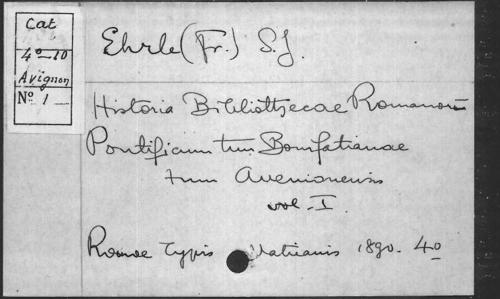 Cat
4º-10
Avignon
Nº 1
Ehrle (Fr.) S.J.
Historia Bibliothecae Romanorū
Pontificum tum Bonifatianae
tum Avenionensis
vol. I.
Romae Typis Vaticanis 1890. 4º